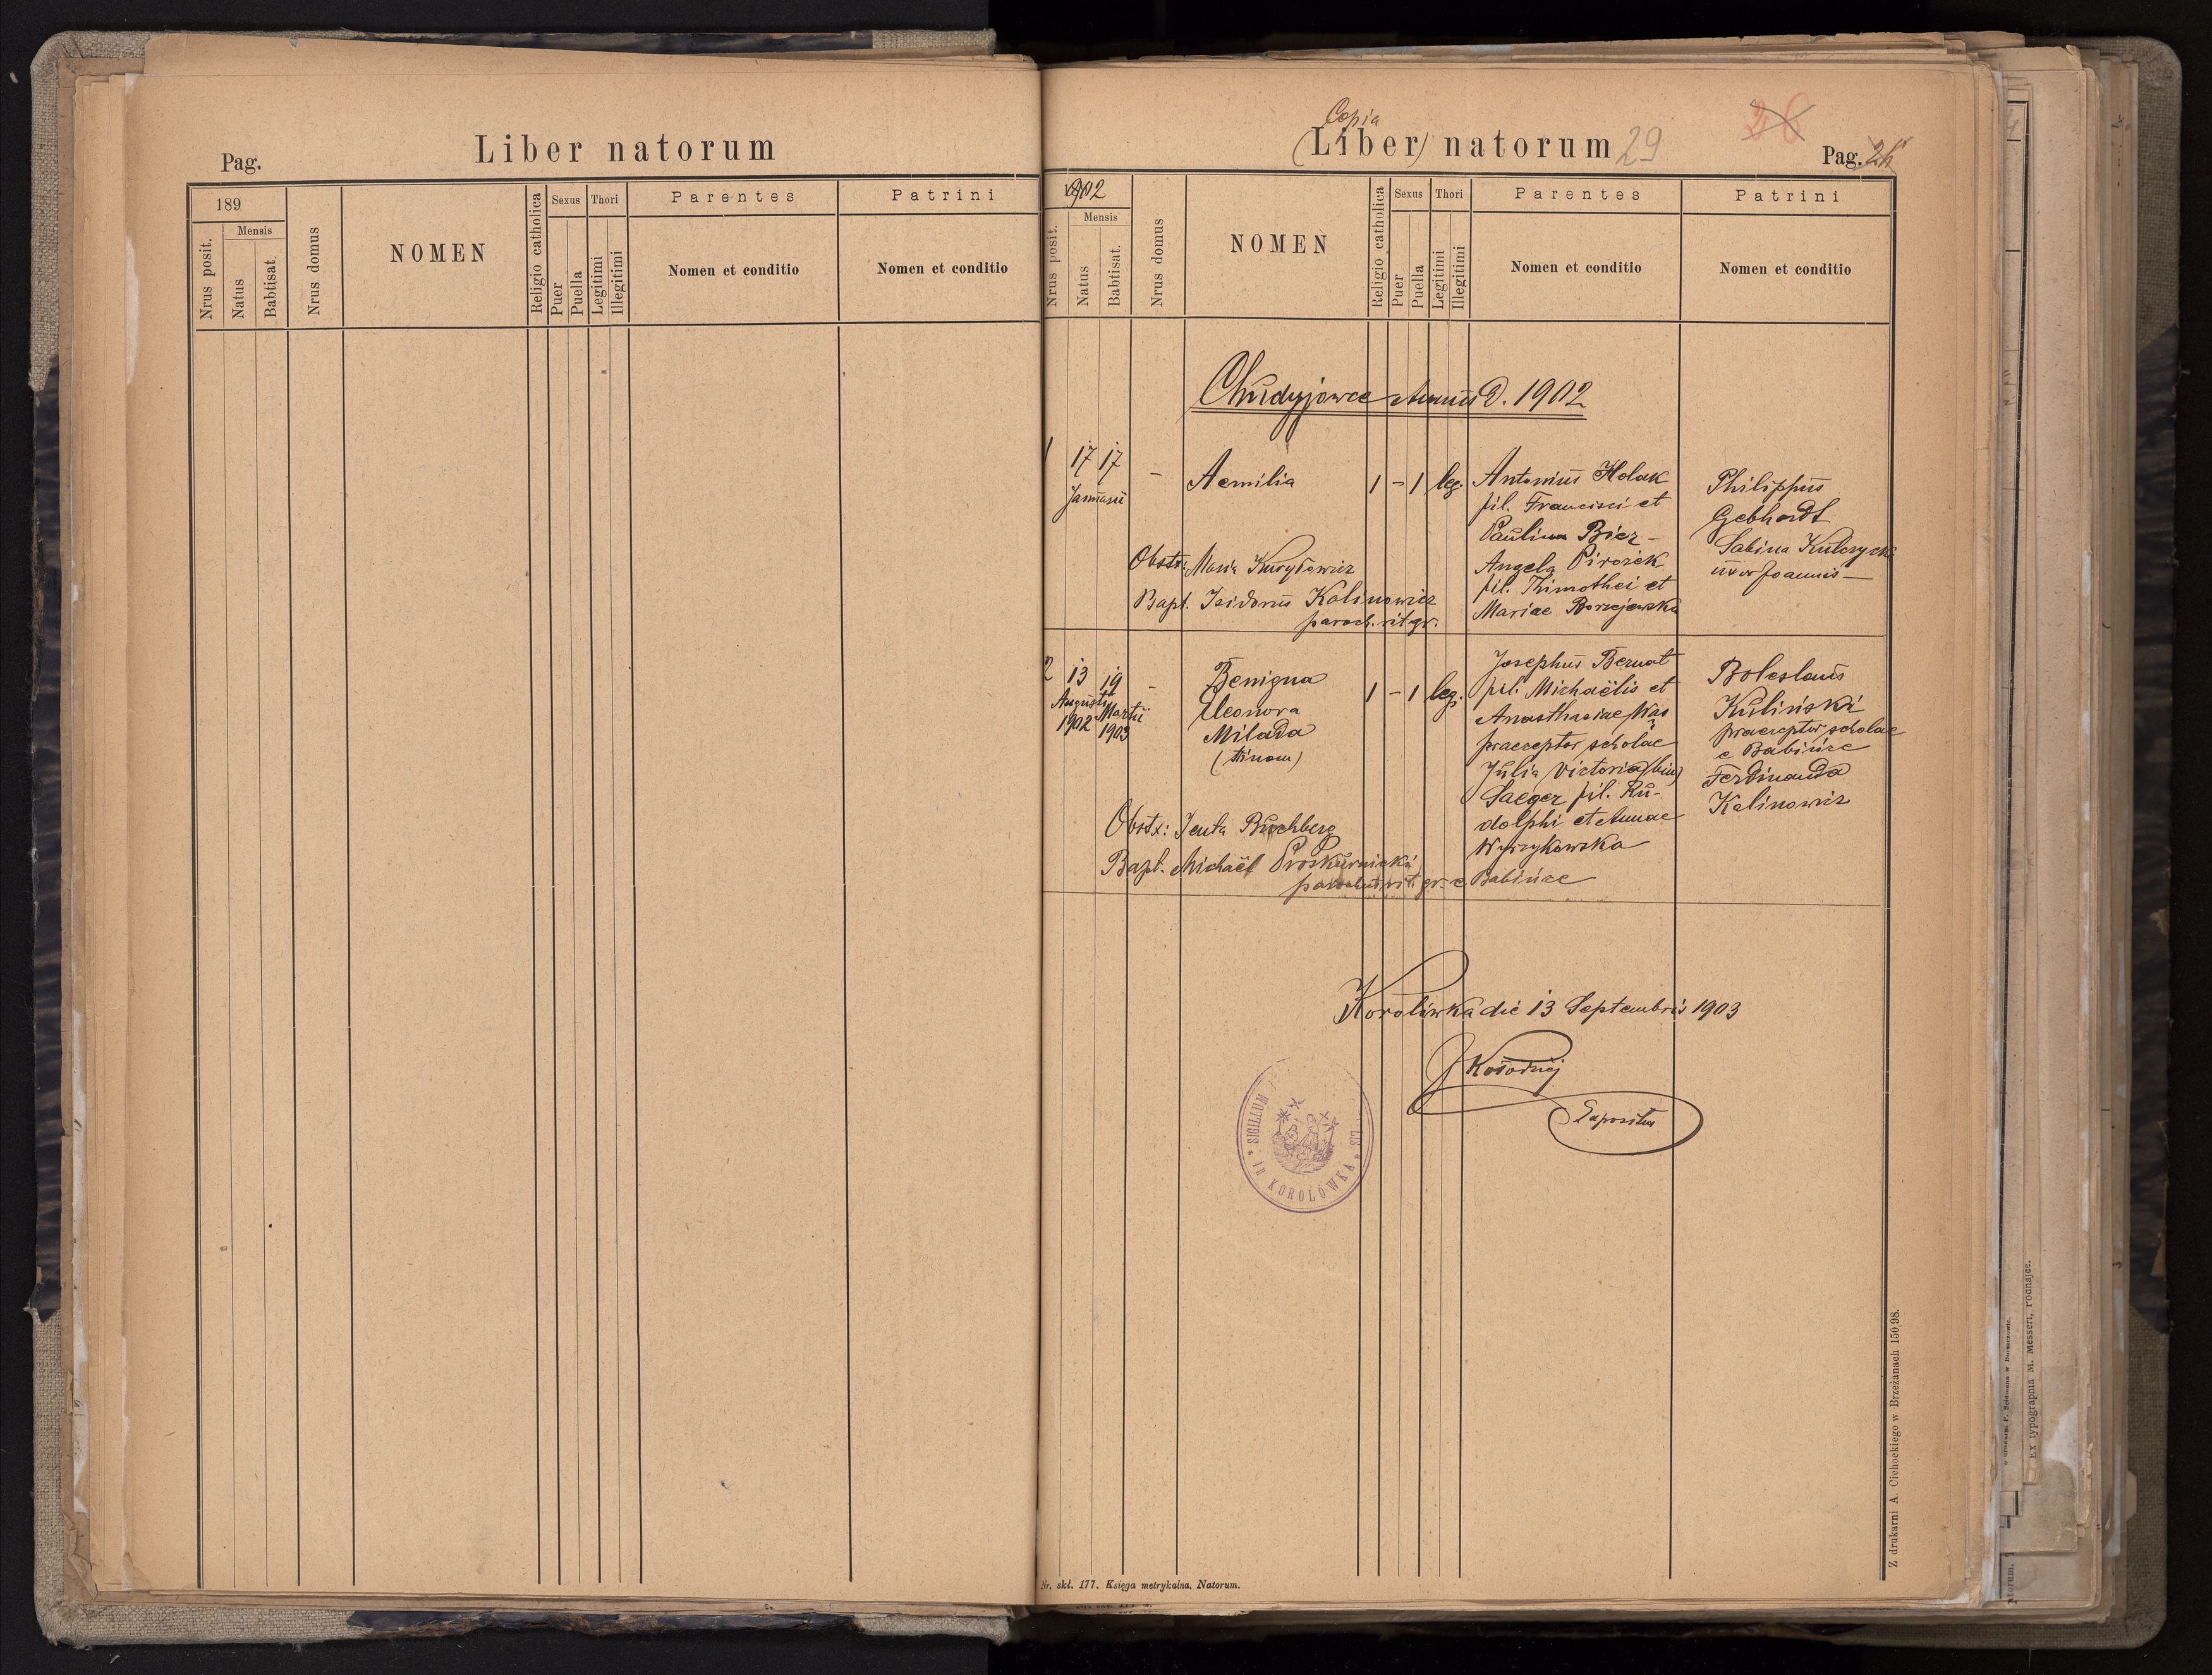 Pag.
Liber natorum
189
Nrus posit.
Mensis
Natus
Babtisat.
Nrus domus
NOMEN
Religio catholica
Sexus
Puer
Puella
Thori
Legitimi
Illegitimi
Parentes
Nomen et conditio
Patrini
Nomen et conditio
Copia
(Liber) natorum 29
26
Pag.
1902
Nrus posit.
Mensis
Natus
Babtisat.
Nrus domus
NOMEN
Religio catholica
Sexus
Puer
Puella
Thori
Legitimi
Illegitimi
Parentes
Nomen et conditio
Patrini
Nomen et conditio
Chudyjowce Annus D. 1902
1 17 17 - Aemilia 1 - 1 leg.
Januarii
Antonius Holak
fil. Francisci et
Paulina Bier -
Angela Pirozek
fil. Thimothei et
Mariae Borzejewska
Philippus
Gebhardt
Sabina Kulczycka
uxor Joannis -
Obstx: Maria Kurylewicz
Bapt. Isidorus Kalinowicz
paroch. rit gr.
2 13 19 - Benigna 1 - 1 leg.
Augusti Martii Eleonora
1902 1903 Milada
(trinom)
Josephus Bernat
fil. Michaëlis et
Anasthasiae Wąs
praeceptor scholae
Julia Victoria (bin)
Saeger fil. Ru-
dolphi et Annae
Wyrzykowska
Boleslaus
Kuliński
praeceptor scholae
e Babińce
Ferdinanda
Kalinowicz
Obstx: Jenta Buchberg
Bapt. Michaël Proskurnicki
parochus rit. gr. e Babińce
Korolówka die 13 Septembris 1903
J Kołodziej
Expositus
SIGILLUM
IN KOROLÓWKA
Nr. skł. 177. Księga metrykalna. Natorum.
Z drukarni A. Cichockiego w Brzeżanach 150/98.
Ex typographia M. Messert, rodhajce.